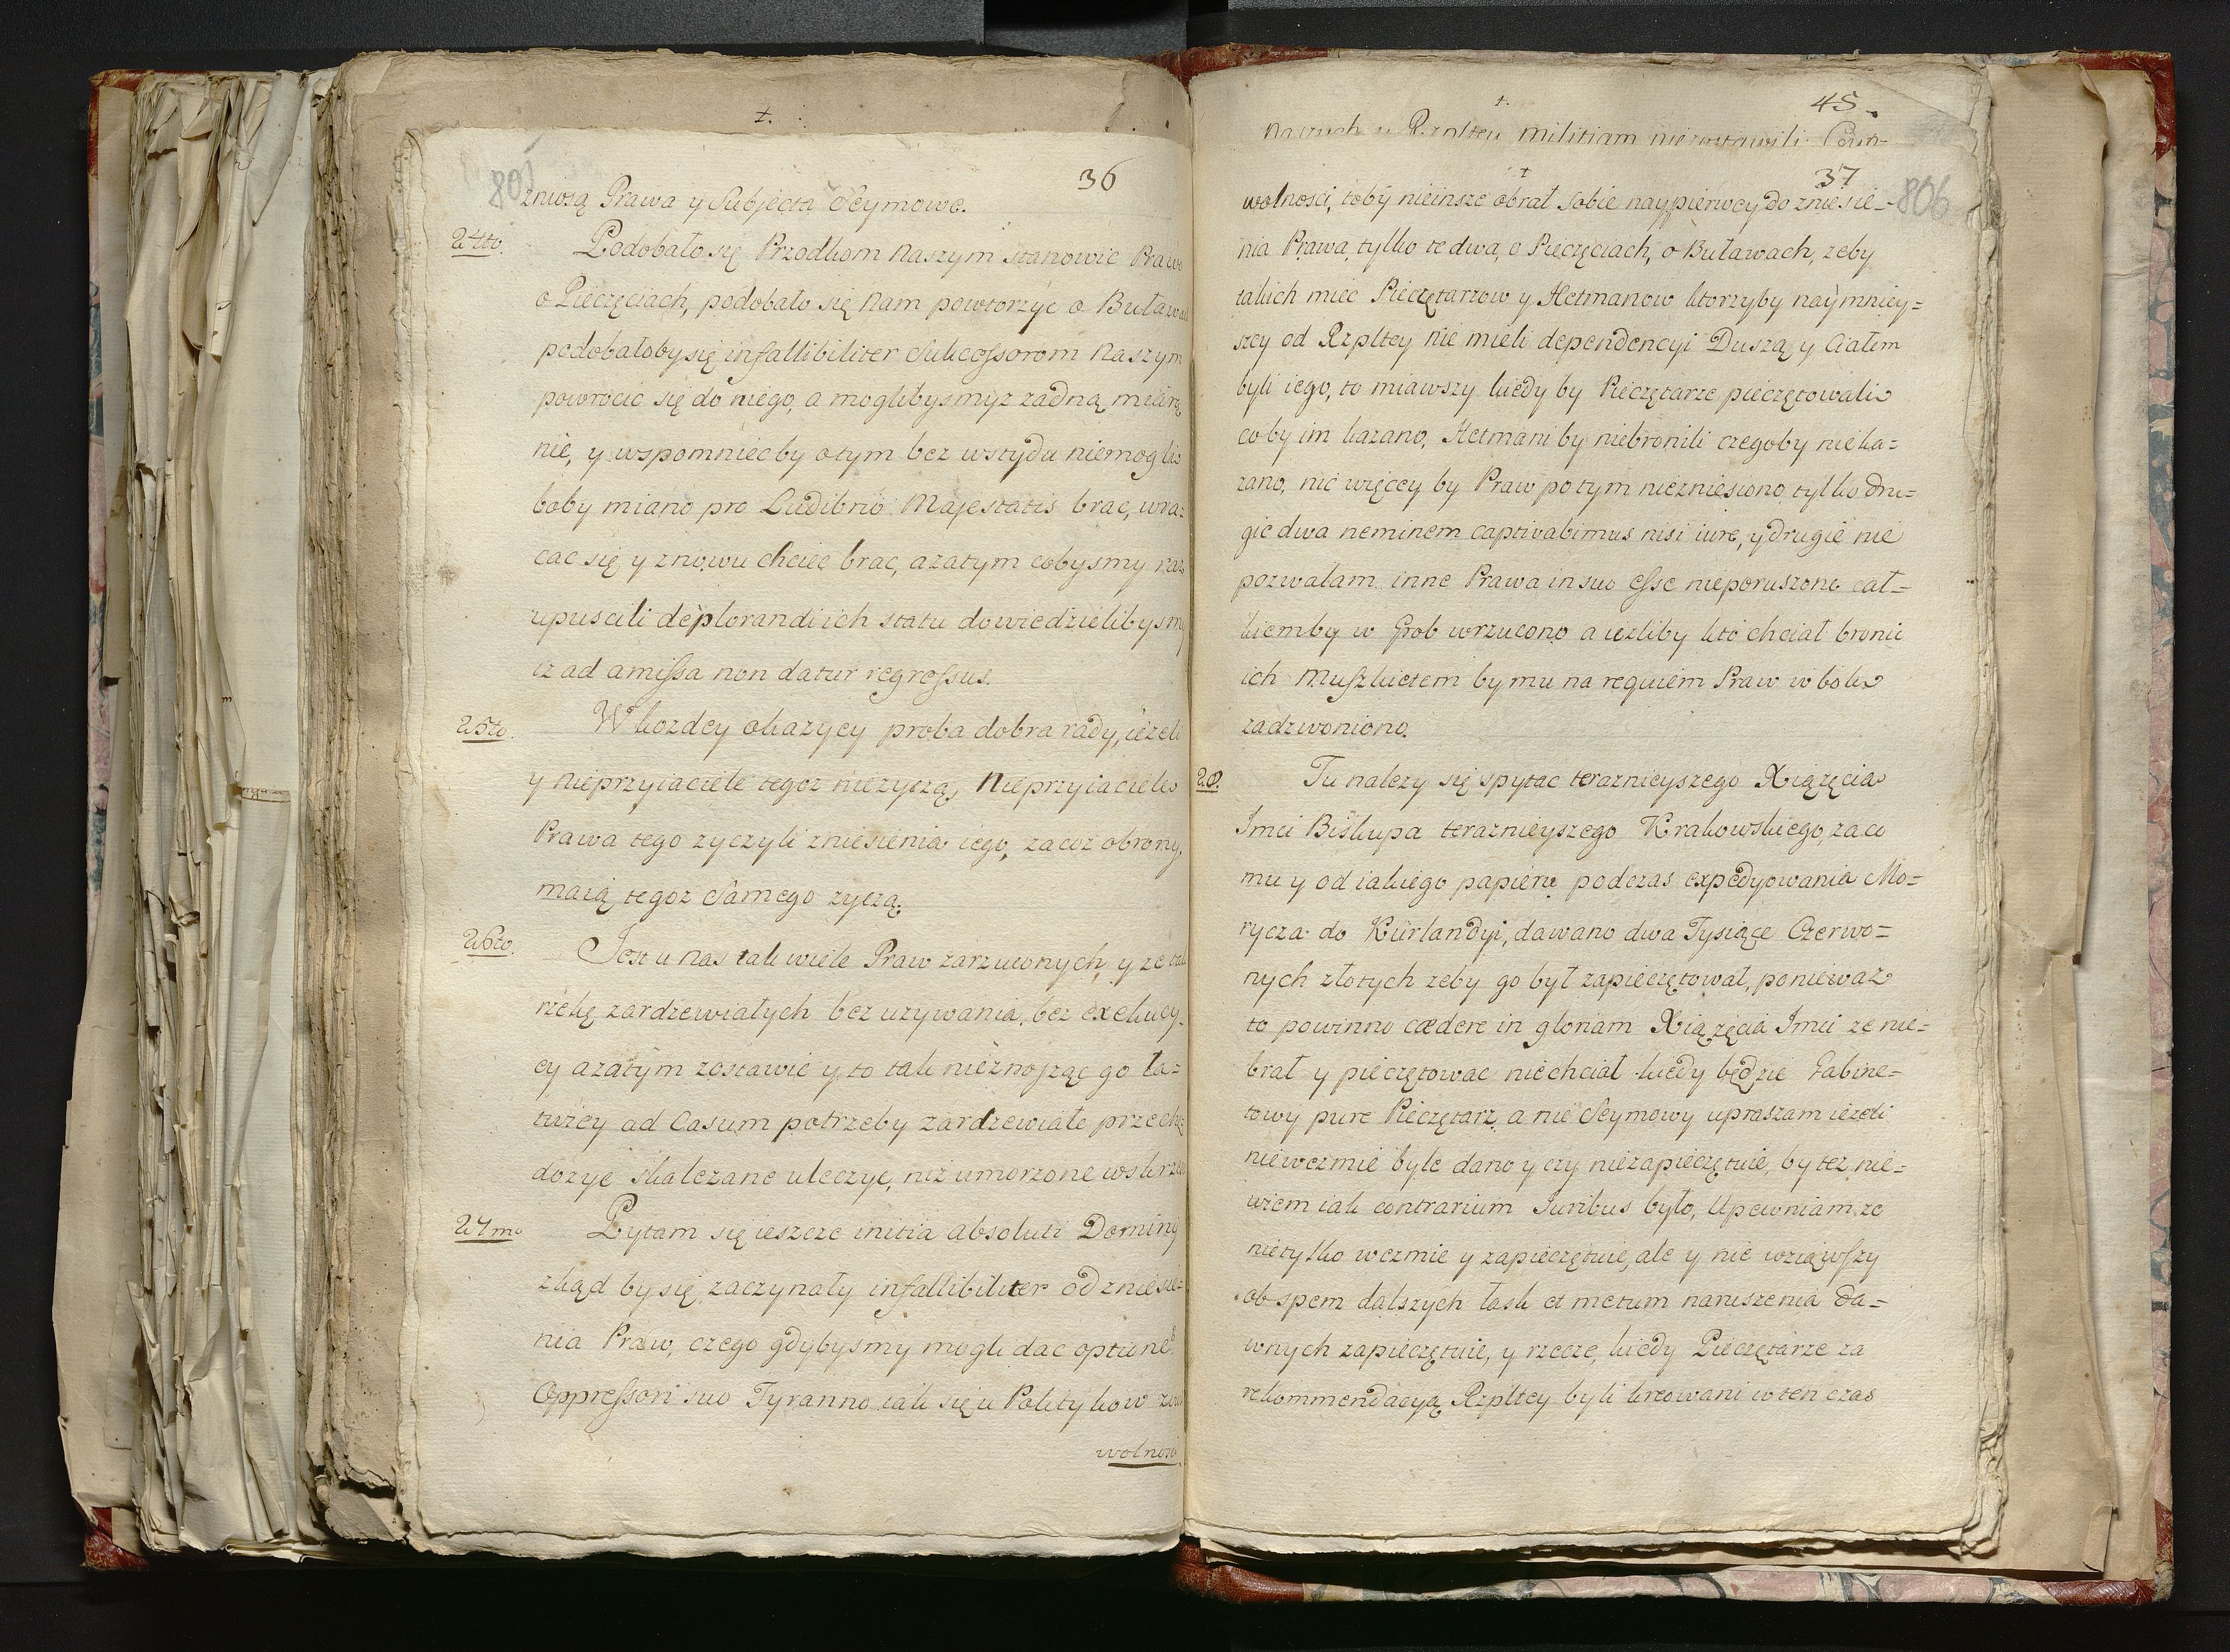 36
801
zniosą Prawa y Subjecta Seymowe.
24to. Podobało się Przodkom Naszym stanowic Prawo
o Pieczęciach, podobało się Nam powtorzyc o Buław
podobałoby się infallibiliter Sukcessorom Naszym
powrocic się do niego, a moglibysmyz zadną miarą
nie, y wspomniec by o tym bez wstydu niemogli
boby miano pro Ludibrio Majestatis brac, wra=
cac się y znowu chciec brac, a zatym cobysmy raz
upuscili deplorandi ich statu dowiedzielibysmy
iz ad amissa non datur regressus.
25to. W kozdey okazycy proba dobra rady, iezeli
y nieprzyiaciele tegoz niezyczą, Nieprzyiaciele
Prawa tego zyczyli zniesienia iego, za coz obrony,
maią tegoz Samego zyczą.
26to. Jest u nas tak wiele Praw zarzuconych, y ze tak
rzekę zardzewiałych bez uzywania, bez exekucy
cy a zatym zostawic y to tak nieznosząc go ła=
twiey ad Casum potrzeby zardzewiałe przechę
dozyc skaleczane uleczyc, niz umorzone wskrze
27mo Pytam się ieszcze initia absoluti Dominij
zkąd by się zaczynały infallibiliter od zniesie=
nia Praw, czego gdybysmy mogli dac optione
Oppressori suo Tyranno iak się u Politykow zow
wolnosci
45.
Naszych y Rzpltey militiam niezostawili.
37
806
wolnosci, toby nieinsze obrał sobie naypierwey do zniesie=
nia Prawa, tylko te dwa, o Pieczęciach, o Buławach, zeby
takich miec Pieczętarzow y Hetmanow ktorzyby naymniey=
szey od Rzpltey nie mieli dependencyi Duszą y Ciałem
byli iego, to miawszy kiedy by Pieczętarze pieczętowali
coby im kazano, Hetmani by niebronili czegoby nieka=
zano, nic więcey by Praw potym niezniesiono tylko dru=
gie dwa neminem captivabimus nisi iure, y drugie nie
pozwalam inne Prawa in suo esse nieporuszone cał=
kiemby w Grob wrzucono a iezliby kto chciał bronic
ich Muszkietem by mu na requiem Praw w boku
zadzwoniono.
28. Tu nalezy się spytac teraznieyszego Xiązęcia
Imci Biskupa teraznieyszego Krakowskiego, za co
mu y od iakiego papieru podczas expedyowania Mo=
rycza do Kurlandyi, dawano dwa Tysiące Czerwo=
nych złotych zeby go był zapieczętował, poniewaz
to powinno cædere in gloriam Xiązęcia Imci ze nie=
brał y pieczętowac niechciał kiedy będzie Gabine=
towy pure Pieczętarz, a nie Seymowy upraszam iezeli
niewezmie byle dano y czy niezapieczętuie, by tez nie=
wiem iak contrarium Juribus było, Upewniam ze
nietylko wezmie y zapieczętuie, ale y nie wziąwszy
ob spem dalszych łask et metum naruszenia da=
wnych zapieczętuie, y rzecze, kiedy Pieczętarze za
rekommendacyą Rzpltey byli kreowani w ten czas